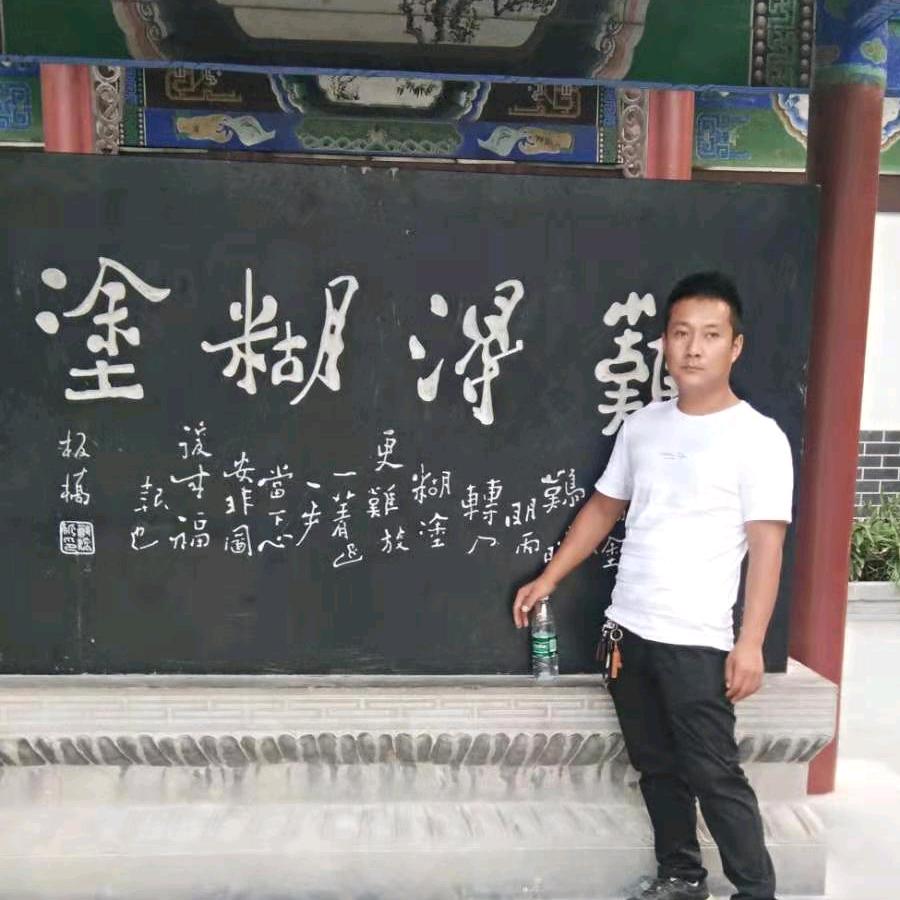 難得糊塗
難
明而
轉入
糊塗
更難放
一著退
一步
當下心
安非圖
後来福
報也
板橋